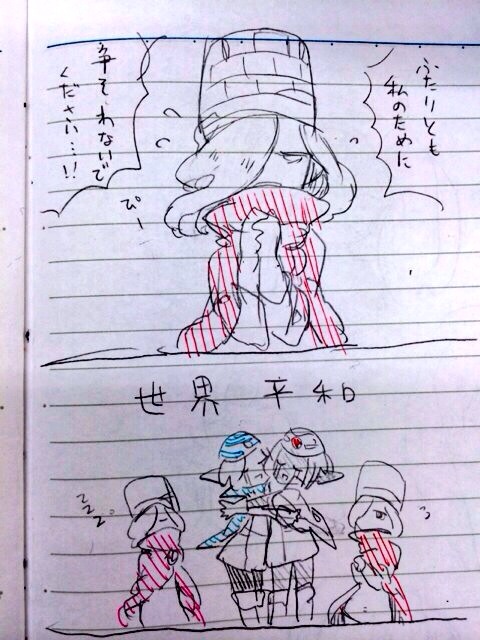 ふたりとも
私のために
争そわないで
ください…!!
ぴー
世界平和
zzz